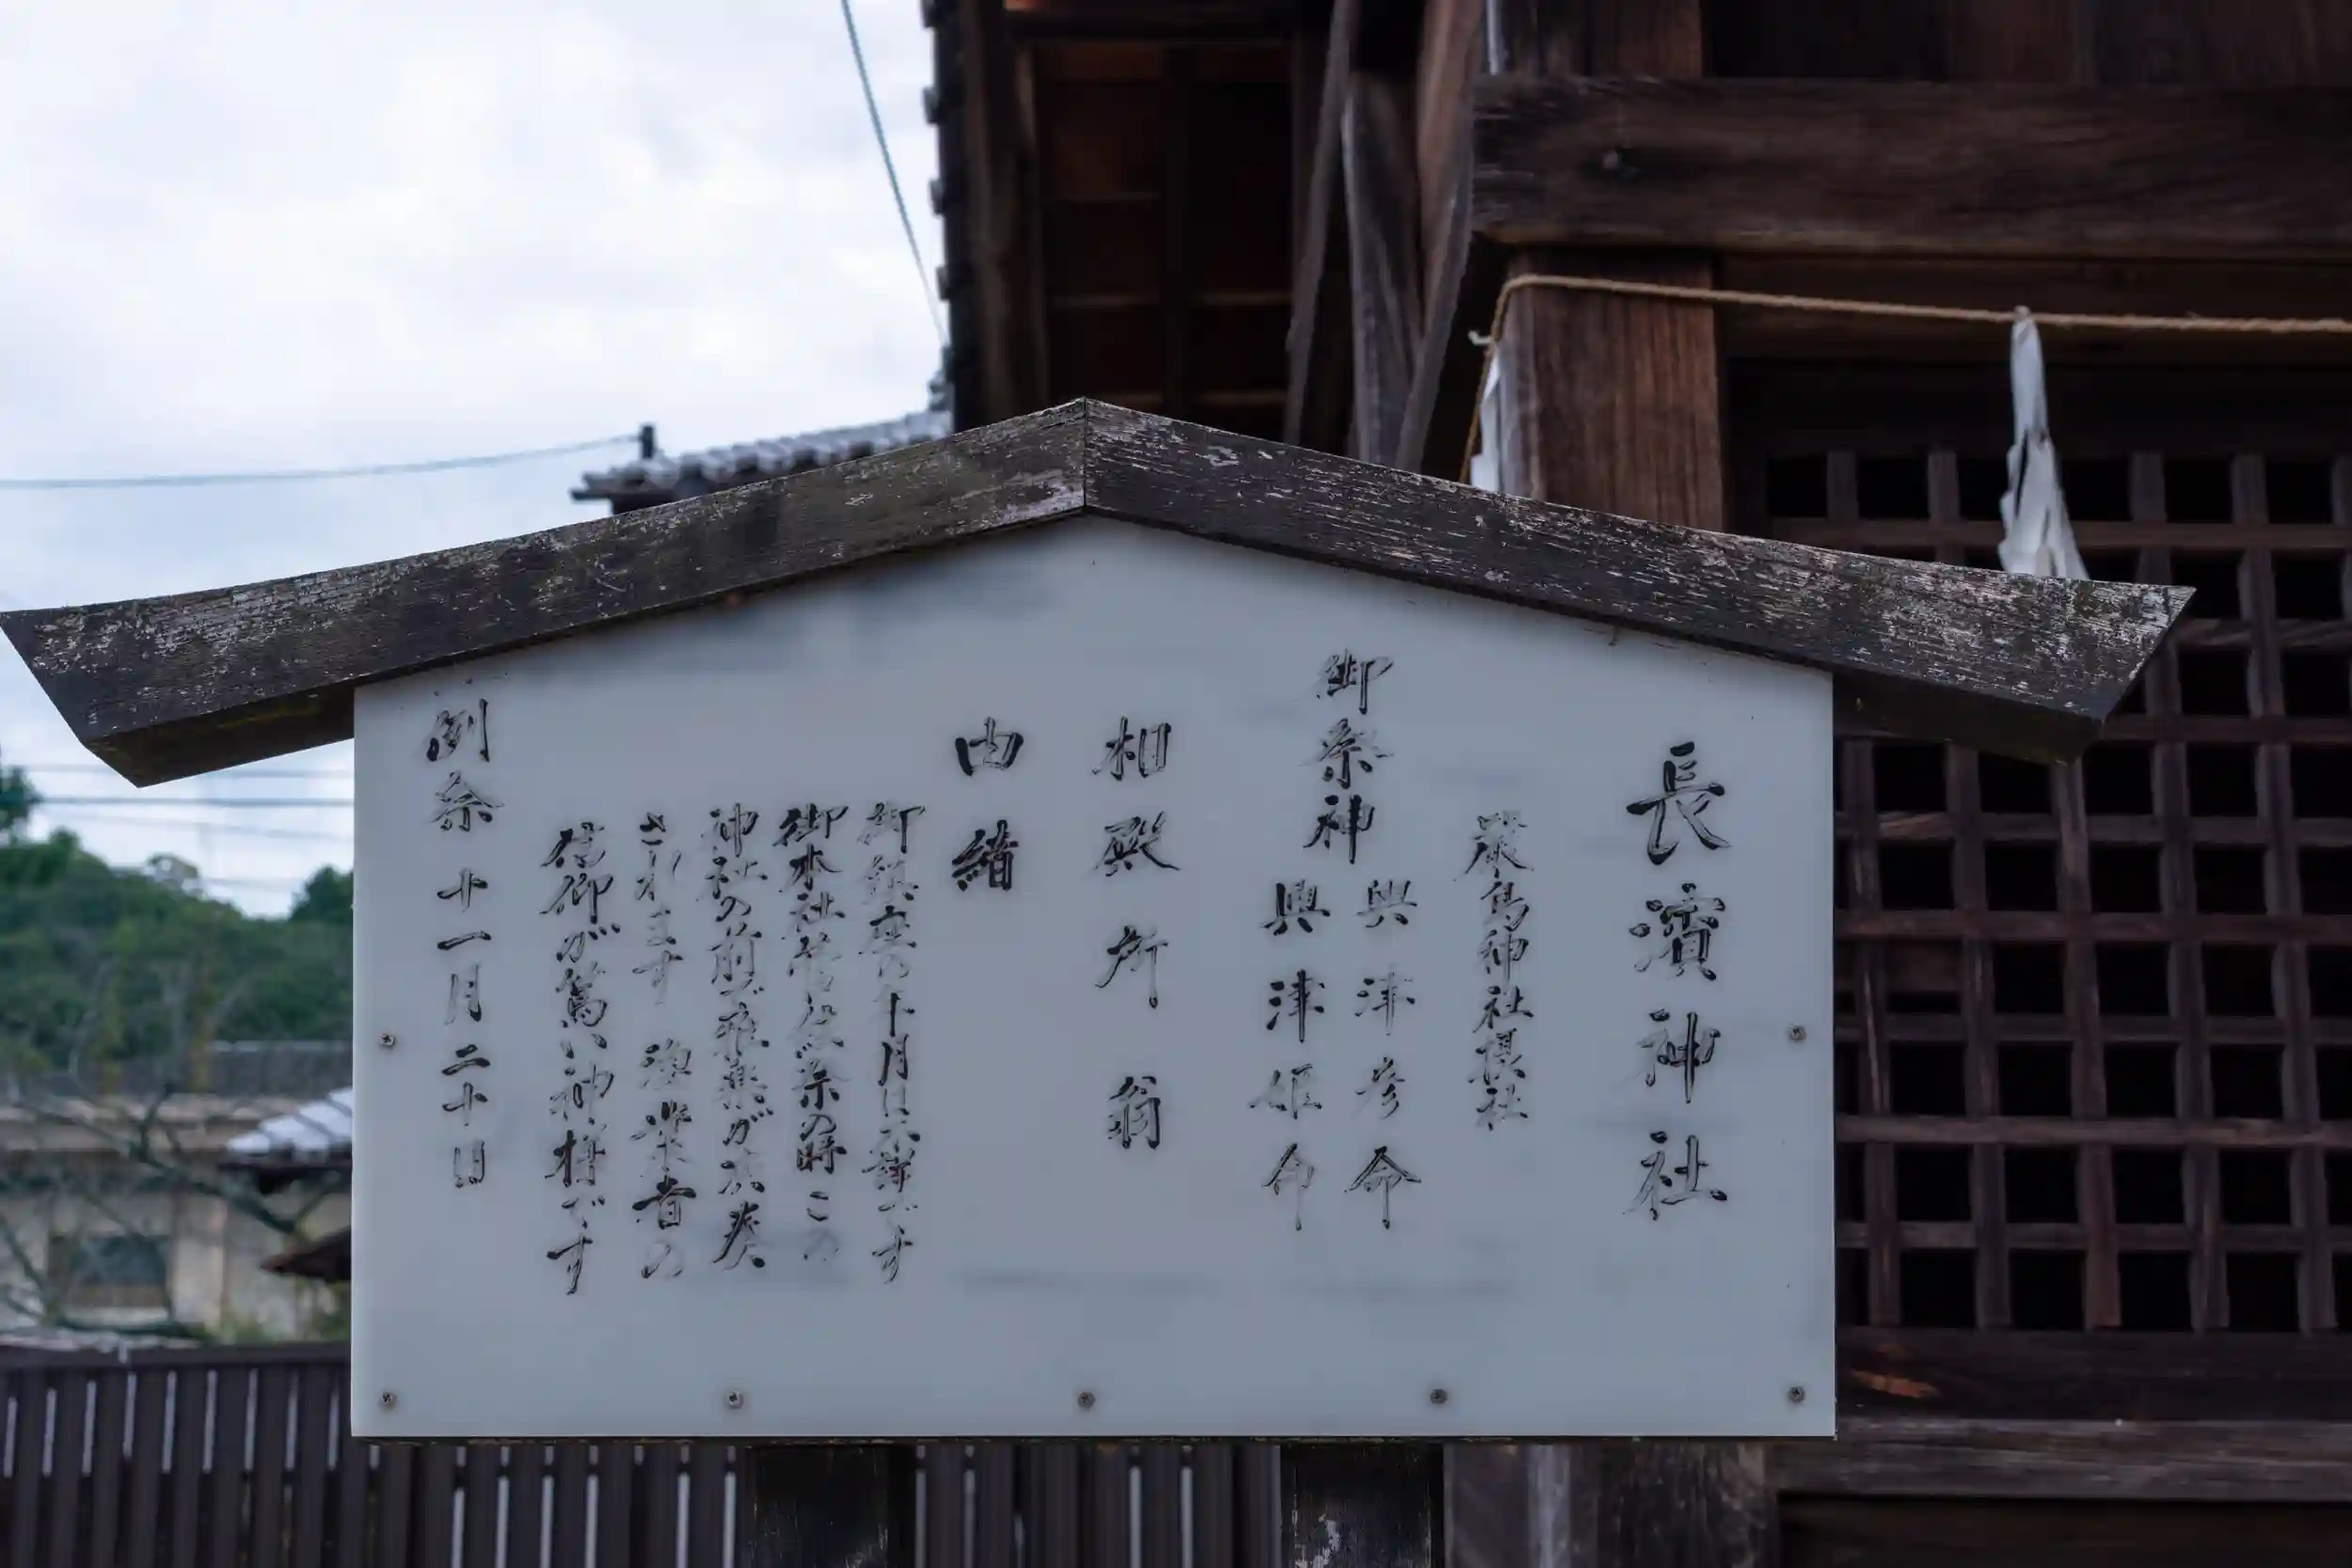 長濱神社
嚴島神社摂社
御祭神
興津彦命
興津姫命
相殿 所 翁
由緒
御鎮座の年月日不詳です
御本社管絃祭の時 この
神社の前で雅楽が演奏
されます 漁業者の
信仰が篤い神様です
例祭 十一月二十日